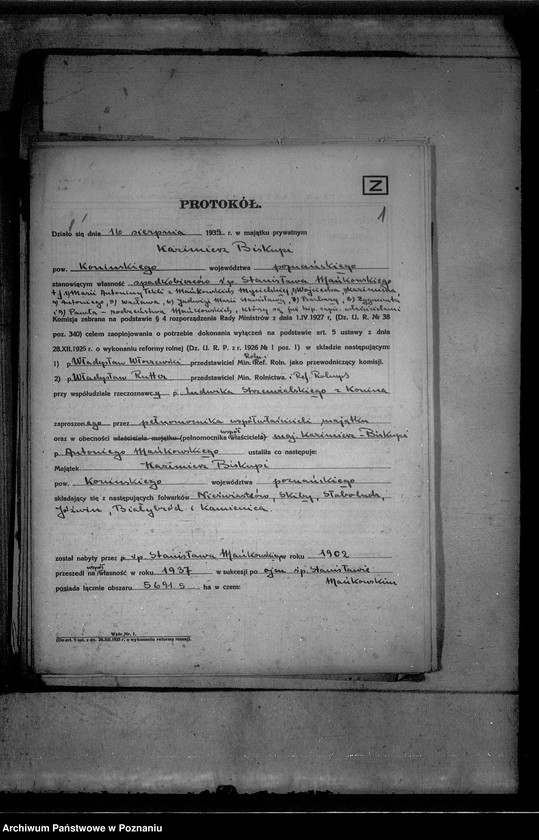 Z
PROTOKÓŁ.
1
Działo się dnia 16 sierpnia 1939 r. w majątku prywatnym
Kazimierz Biskupi
pow. Konińskiego województwa poznańskiego
stanowiącym własność spadkobierców ś.p. Stanisława Mańkowskiego
t.j. Marii Antoniny, Tekli z Mańkowskich Mycielskiej, Wojciecha Kazimierza
Antoniego, Wacława, Jadwigi Marii Stanisławy, Barbary, Zygmunta
i Pawła – rodzeństwa Mańkowskich, którzy są już hip. właścicielami
Komisja zebrana na podstawie § 4 rozporządzenia Rady Ministrów z dnia 1.IV 1927 r. (Dz. U. R. № 38
poz. 340) celem zaopinjowania o potrzebie dokonania wyłączeń na podstawie art. 5 ustawy z dnia
28.XII.1925 r. o wykonaniu reformy rolnej (Dz. U. R. P. z r. 1926 № 1 poz. 1) w składzie następującym:
1) p. Władysław przedstawiciel Min. Roln. i Ref. Roln. jako przewodniczący komisji.
2) p. Władysław Rutter przedstawiciel Min. Rolnictwa i Ref. Rolnych
przy współudziale rzeczoznawcy p. Ludwika z Konina
zaproszonego przez pełnomocnika współwłaścicieli majątku
oraz w obecności właściciela majątku (pełnomocnika współwłaściciela) maj. Kazimierz-Biskupi
p. Antoniego Mańkowskiego ustaliła co następuje:
Majątek Kazimierz Biskupi
pow. Konińskiego województwa poznańskiego
składający się z następujących folwarków Nieświastów, Słaboludz,
Jóźwin, Białybród i Kamienica.
został nabyty przez p. śp. Stanisława Mańkowskiego w roku 1902
przeszedł na współwłasność w roku 1937 w sukcesji po ojcu śp. Stanisławie
Mańkowskim
posiada łącznie obszaru 5691.5 ha w czem:
Wzór Nr. 1.
(Do art. 5 ust. z dn. 28.XII.1925 r. o wykonaniu reformy rolnej).
Archiwum Państwowe w Poznaniu